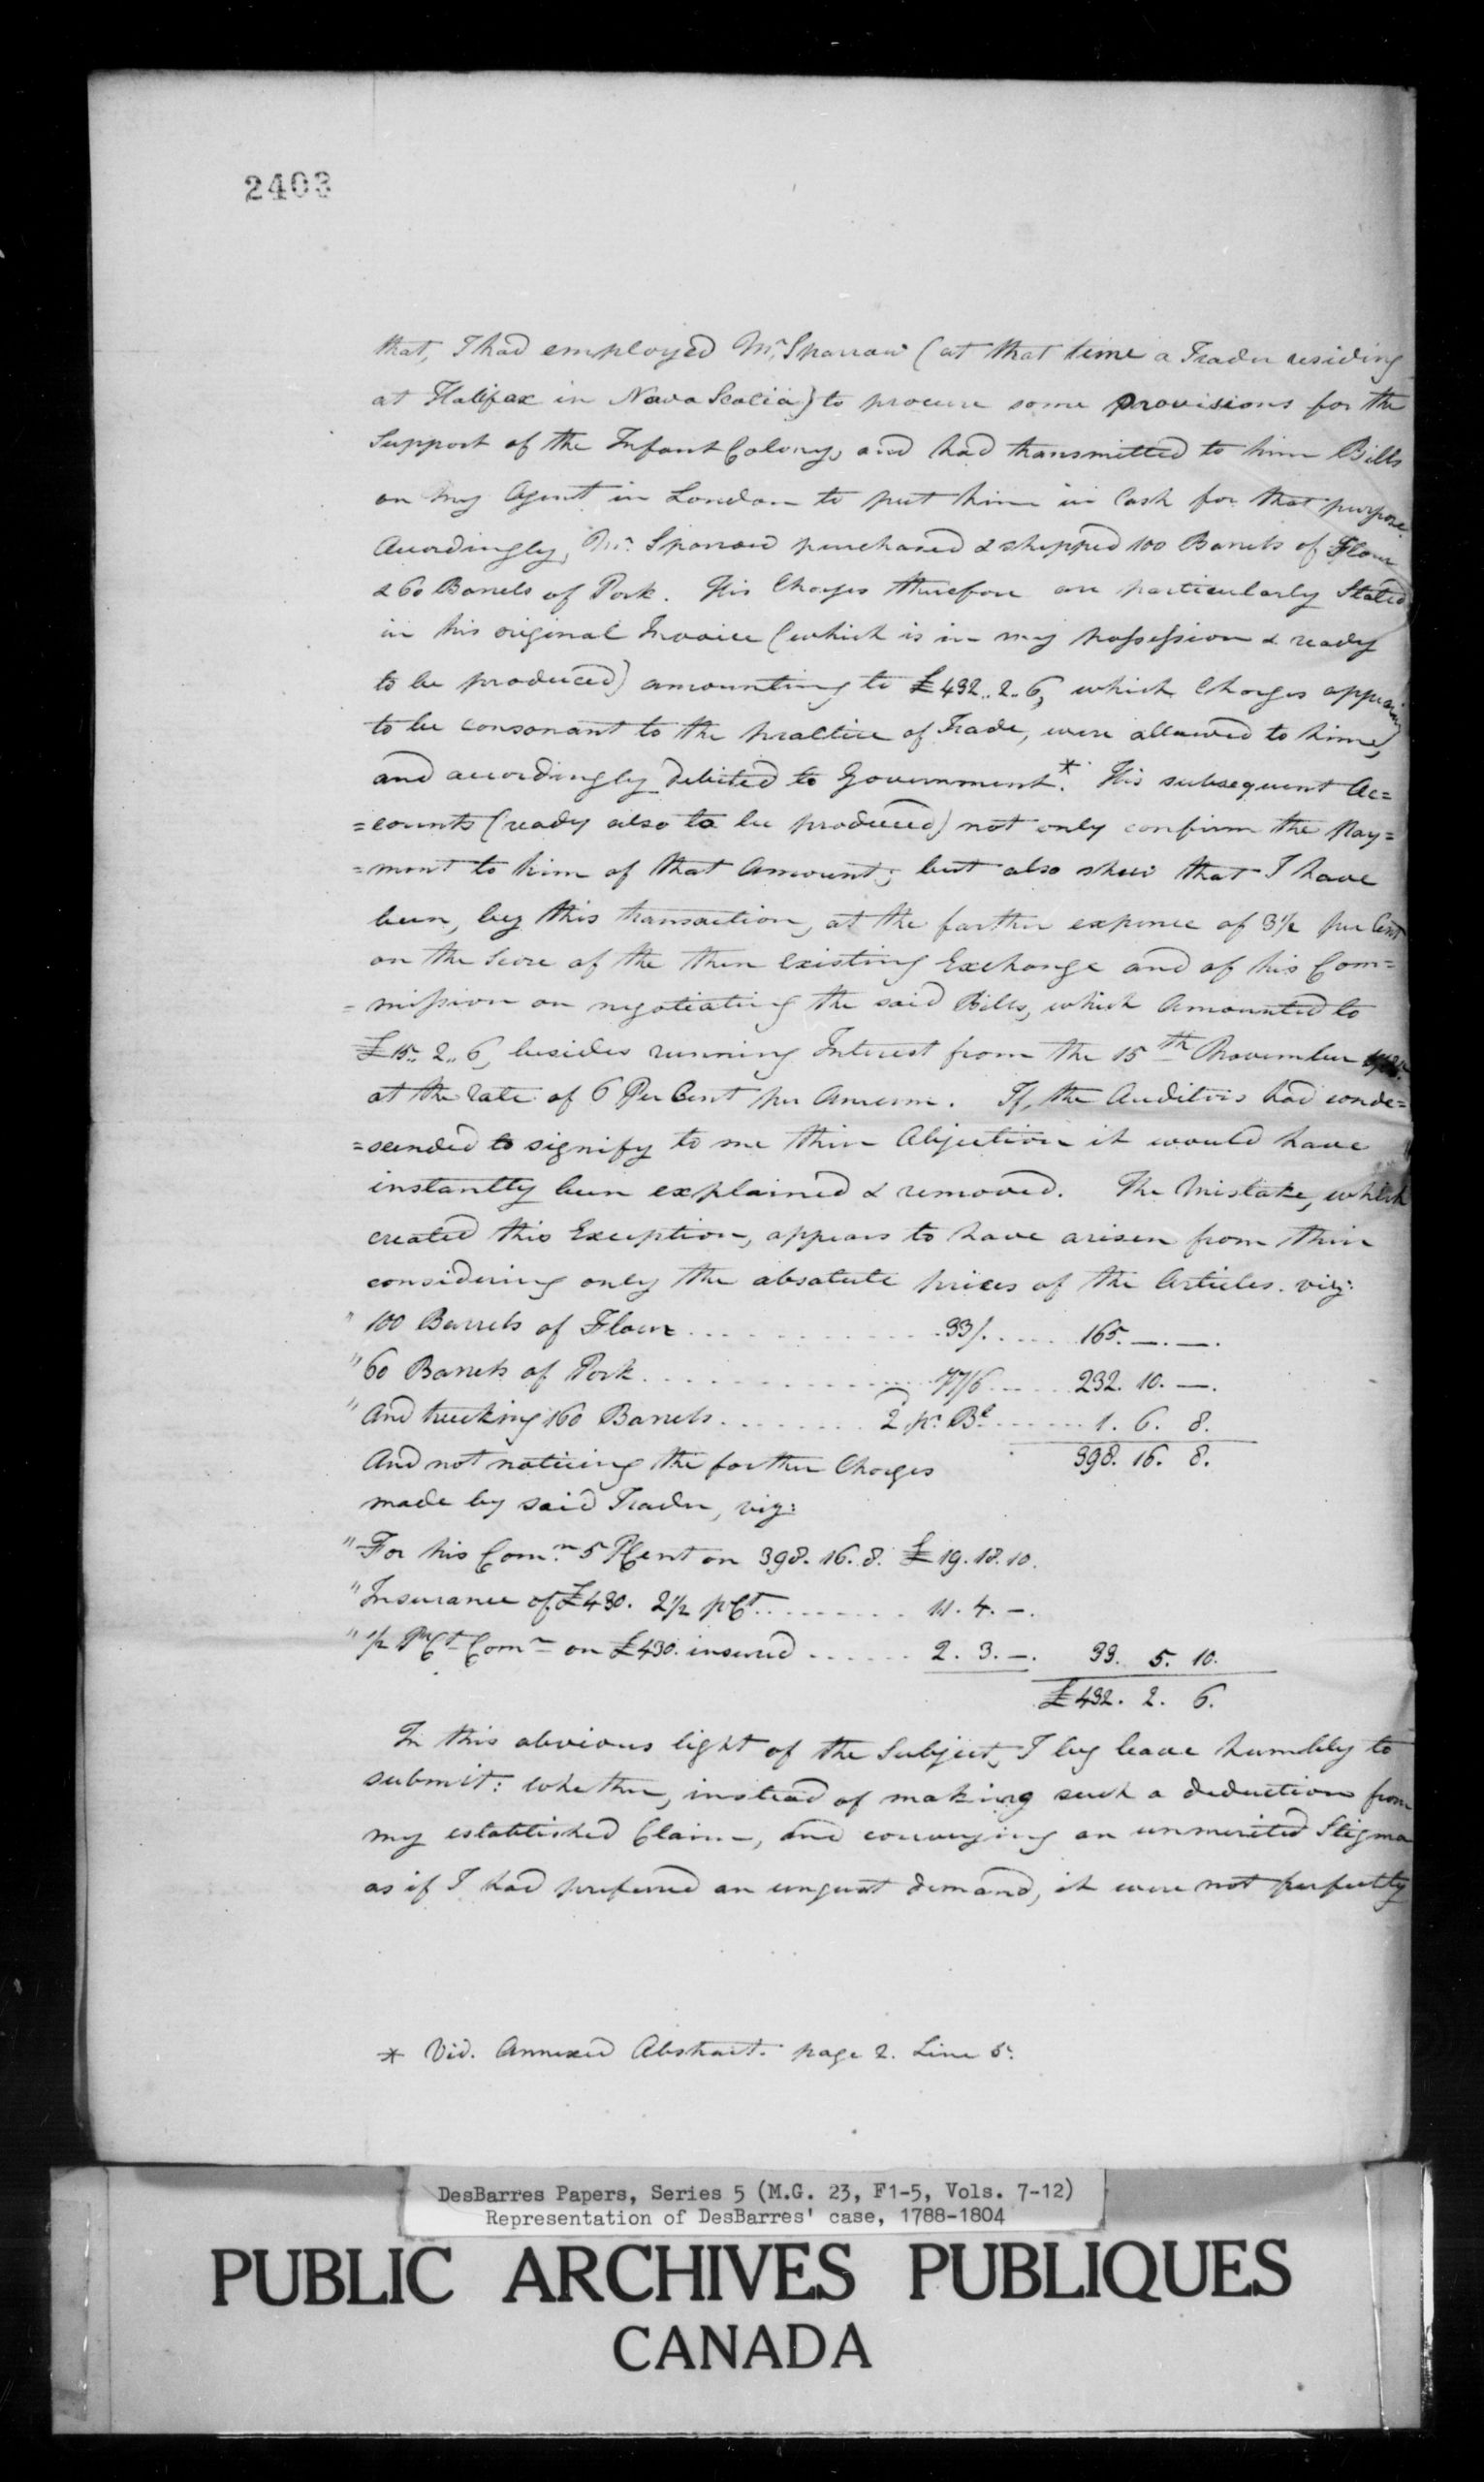 2403
that, I had employed Mr. Sparrow (at that time a Trader residing
at Halifax in Nova Scotia) to procure some Provisions for the
Support of the Infant Colony, and had transmitted to him Bills
on my Agent in London to put him in Cash for that purpose.
Accordingly, Mr. Sparrow purchased & shipped 100 Barrels of Flour
& 60 Barrels of Pork. His Charges therefore are particularly Stated
in his original Invoice (which is in my possession & ready
to be produced) amounting to £432..2..6, which Charges appearing
to be consonant to the practice of Trade, were allowed to him,
and accordingly debited to Government.* His subsequent Ac=
=counts (ready also to be produced) not only confirm the Pay=
=ment to him of that Amount; but also shew that I have
been, by this transaction, at the farther expence of 3½ per Cent
on the Score of the then existing Exchange and of his Com=
=mission on negotiating the said Bills, which Amounted to
£15..2..6, besides running Interest from the 15th November
at the rate of 6 Per Cent per Annum. If, the Auditors had conde=
=scended to signify to me their Objection it would have
instantly been explained & removed. The Mistake, which
created this Exception, appears to have arisen from their
considering only the absolute prices of the Articles. viz:
" 100 Barrels of Flour .......... 33/. ..... 165. —. —.
" 60 Barrels of Pork .......... 77/6 ..... 232. 10. —.
" And trucking 160 Barrels ........ 2 pr. Bl. ...... 1. 6. 8.
And not noticing the farther Charges 398. 16. 8.
made by said Trader, viz:
" For his Comn. 5 PCent on 398. 16. 8. £19. 18. 10.
" Insurance of £430. 2½ pCt. ........ 11. 4. —.
" ½ PrCt Comn on £430. insured ...... 2. 3. —. 33. 5. 10.
£432. 2. 6.
In this obvious light of the Subject, I beg leave humbly to
submit: whether, instead of making such a deduction from
my established Claim, and conveying an unmerited Stigma
as if I had preferred an unjust demand, it were not perfectly
* Vid. Annexed Abstract. page 2. Line 5.
DesBarres Papers, Series 5 (M.G. 23, F1-5, Vols. 7-12)
Representation of DesBarres' case, 1788-1804
PUBLIC ARCHIVES PUBLIQUES
CANADA